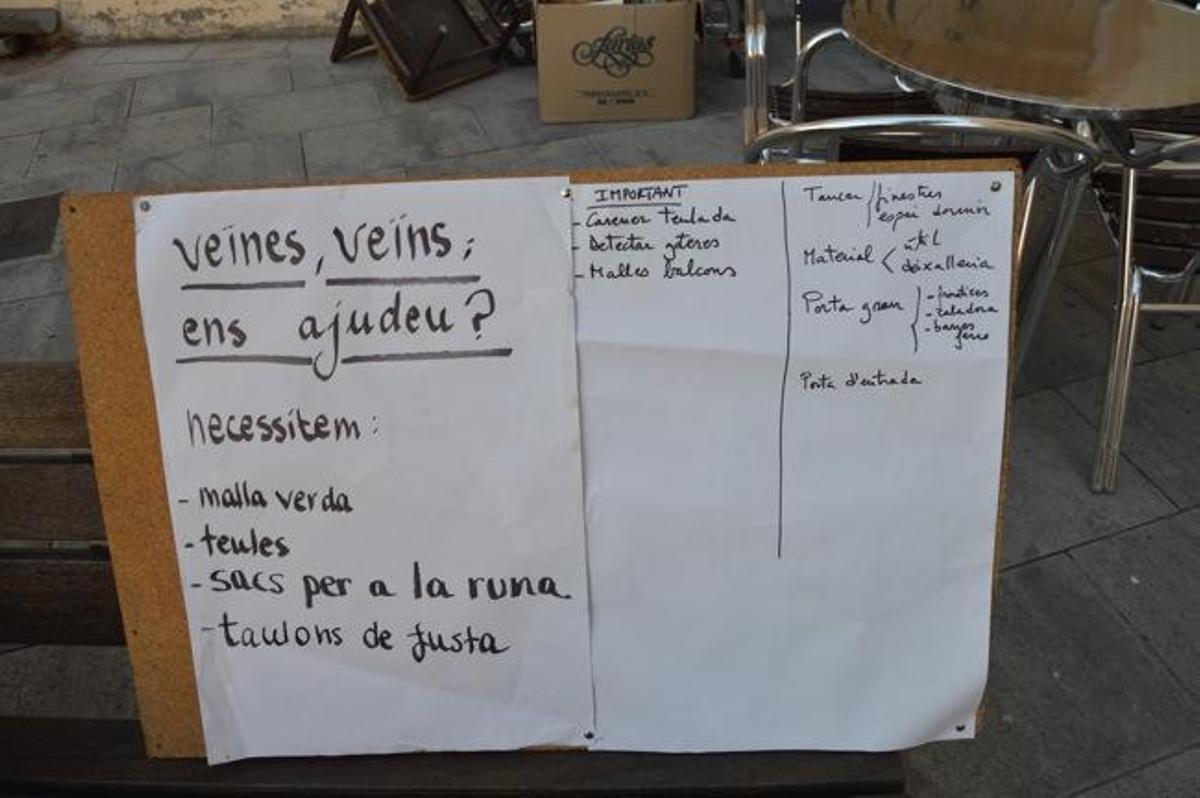 veïnes, veïns;
ens ajudeu?
necessitem:
- malla verda
- teules
- sacs per a la runa
- taulons de fusta
IMPORTANT
- Carener teulada
- Detectar goteres
- Malles balcons
Tancar finestres
espai dormir
Material < útil
deixalleria
Porta gran
- frontices
- taladora
- barres
ferro
Porta d'entrada